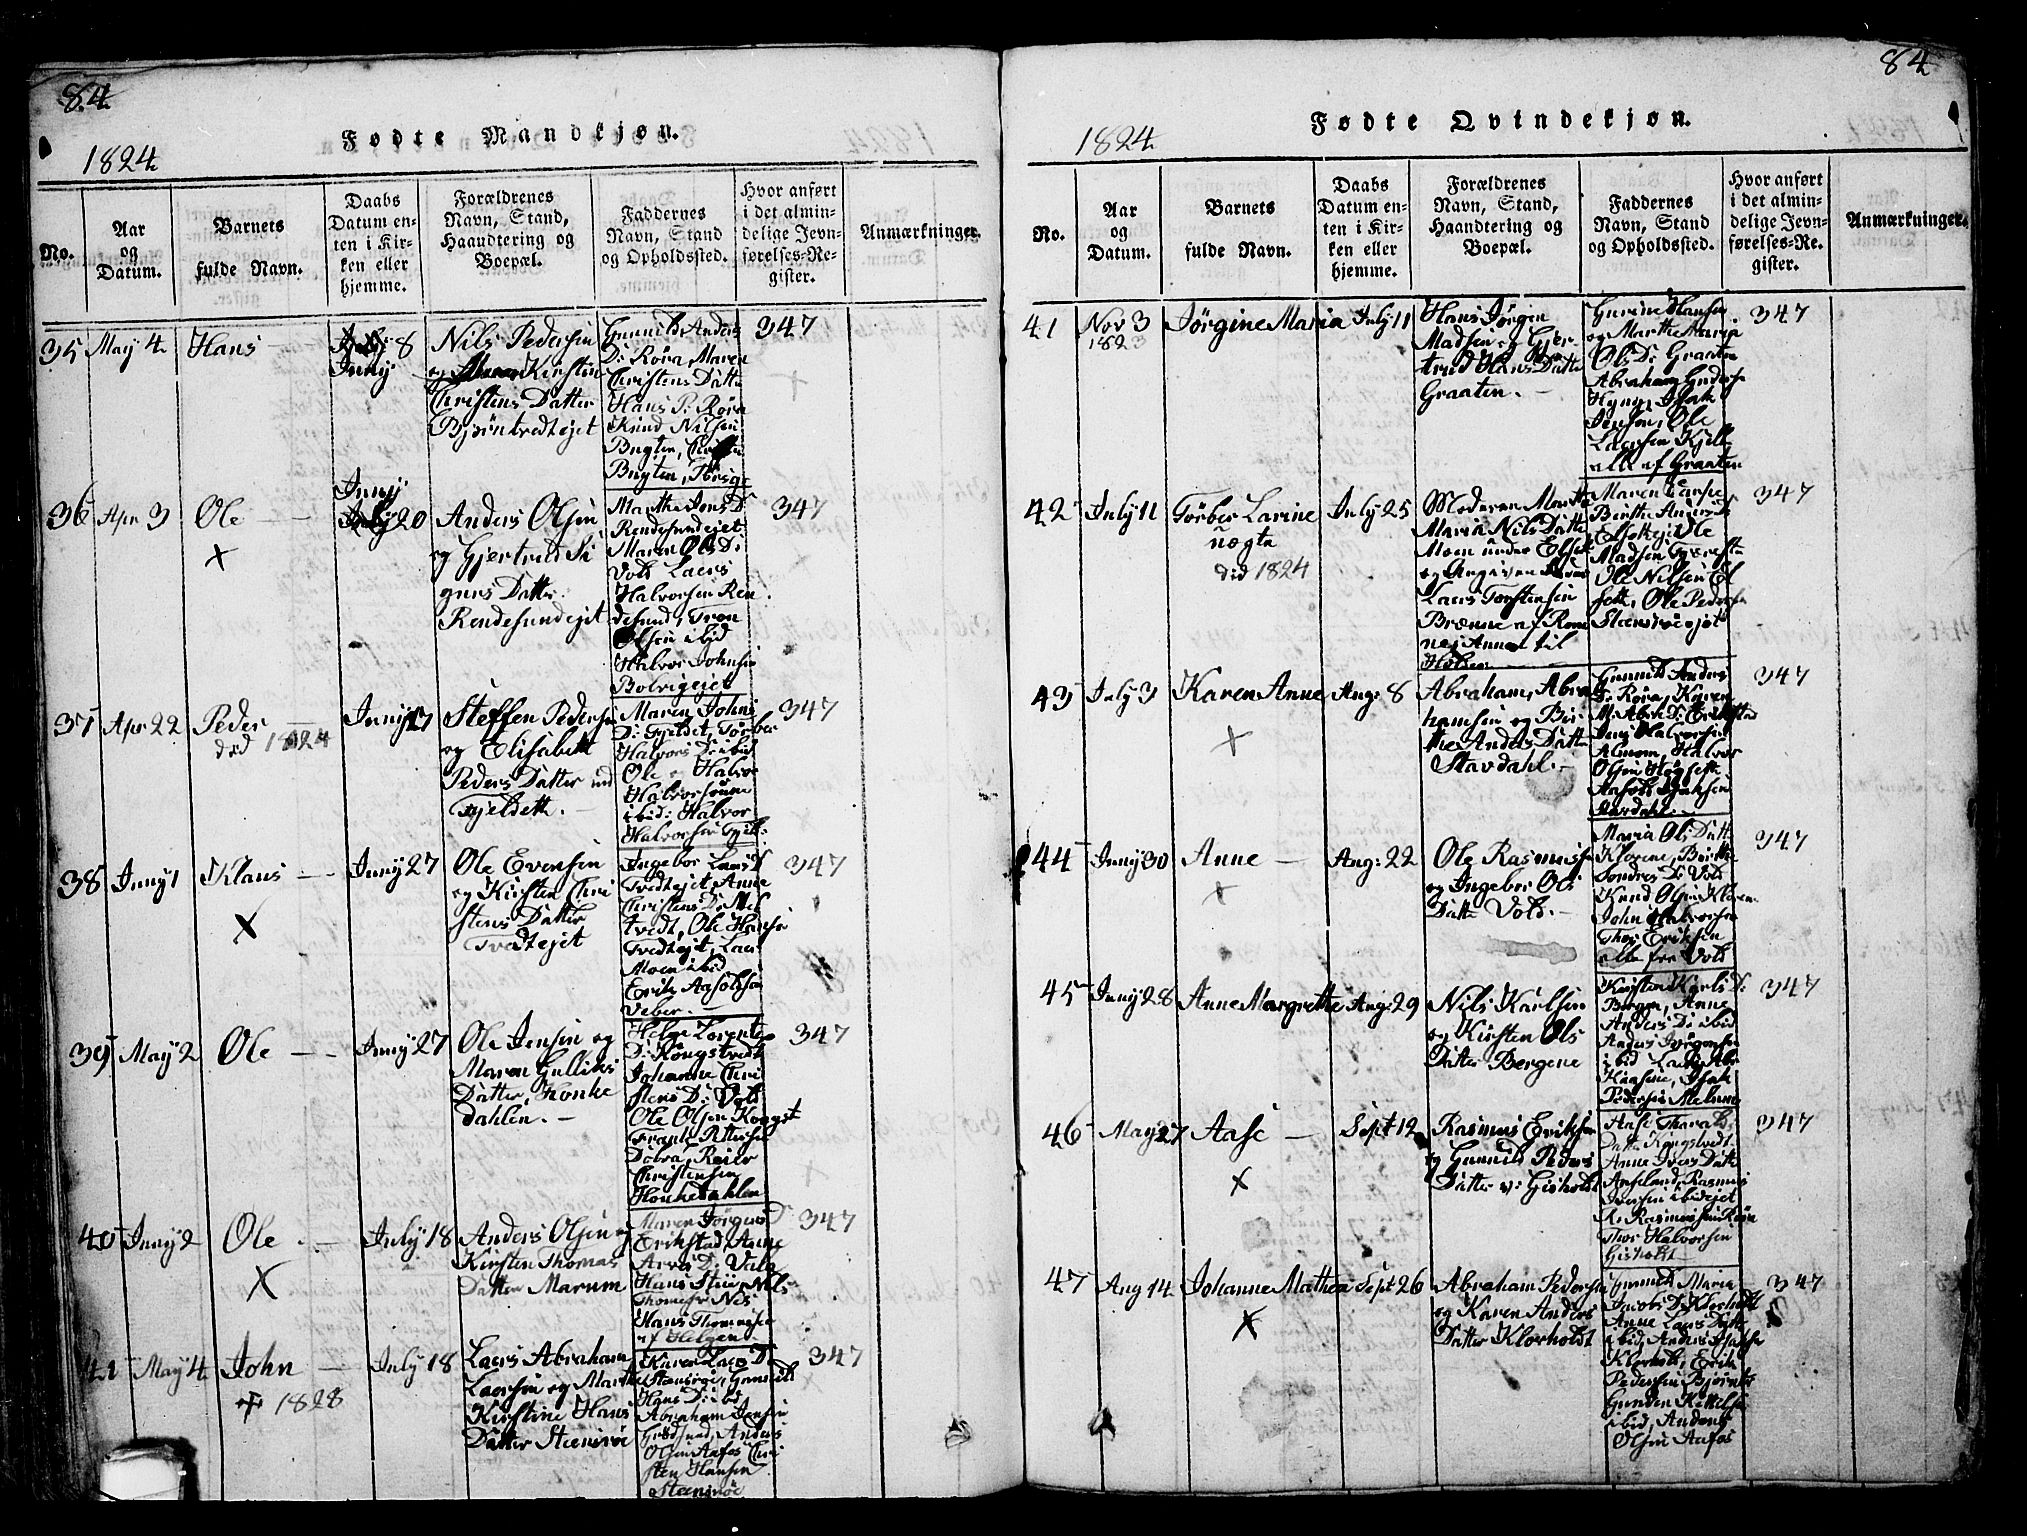 84
1824
Fødte Mandkjøn.
No.
Aar
og
Datum.
Barnets
fulde Navn.
Daabs
Datum en-
ten i Kir-
ken eller
hjemme.
Forældrenes
Navn, Stand,
Haandtering og
Boepæl.
Faddernes
Navn, Stand
og Opholdssted.
Hvor anført
i det almin-
delige Jevn-
førelses-Re-
gister.
Anmærkninger.
35
May 4
Hans
July 8
Juny
Nils Pedersen
og Kirsten
Christens Datter
Bjöntvedtejet
Gunnild Anders
D: Röra Maren
Christens Datte
Hans P: Röra
Knud Nilsen
Bugten
Bugten
347
36
Apr 3
Ole
Juny
July 20
Anders Olsen
og Gjertrud Si
gurs Datter
Rendesundejet
Marthe Jens D
Rendesundejet
Maren Ols D:
Vold Laers
Halvorsen Ren
desund, Tron
Olsen ibid
Halvor Johnsen
Bolvigejet
347
37
Apr 22
Peder
död 1824
Juny 17
Steffen Peders
og Elisabeth
Peders Datter und
Gjeldeth.
Maren Johns
Halvors D: ibid
Ole Halvor
Halvorsenne
ibid: Halvor
Halvorsen
347
38
Juny 1
Klaus
Juny 27
Ole Evensen
og Kirsten Chri
stens Datter
Tvedtejet
Ingebor Laers D
Tvedtejet, Anne
Christens D: Mel
tvedt, Ole Hansen
Tvedtejet, Laers
Moen ibid
Erik Aasoldsen
Veber.
347
39
May 2
Ole
Juny 27
Ole Jensen og
Maren Gulliks
Datter, Honke
dahlen.
Helge Lorents
D: Kongstvedt
Johanne Chri
stens D: Vold
Ole Olsen Kongst
Frank Attersen
Dobra, Reier
Christensen
Honkedahlen
347
40
Juny 2
Ole
July 18
Anders Olsen og
Kirsten Thomas
Datter Marum
Maren Jörgens D
Erikstad, Anne
Hans Thommesen
af Helgen.
347
41
May 4
John
+ 1828
July 18
Laers Abraham
Laersen og Marthe
Kirstine Hans
Datter Steensröe
Karen Laers D.
Steensröe, Gunnild
Hans D: ibd
Abraham Jensen
Grödsund, Anders
Olsen Aafos Chri
sten Hansen
Steensröe
347
84
1824
Fødte Qvindekjøn.
No.
Aar
og
Datum.
Barnets
fulde Navn.
Daabs
Datum en-
ten i Kir-
ken eller
hjemme.
Forældrenes
Navn, Stand,
Haandtering og
Boepæl.
Faddernes
Navn, Stand
og Opholdssted.
Hvor anført
i det almin-
delige Jevn-
førelses-Re-
gister.
Anmærkninger.
41
Nov 3
1823
Jörgine Maria
July 11
Hans Jörgen
Madsen og Gjer-
trud Hans Datte
Graaten.
Gurine Hansen
og Marthe Maria
Ols D: Graaten
Abraham
Isak
Jensen, Ole
Laersen
alle af Graaten
347
42
July 11
Törber Larine
uægte
död 1824
July 25
Moderen Marthe
Maria Nils Datte
Moen under Elset
og Angiven
Laers Torstensen
Brænne af Rom
nes Annex til
Holden
Maren
Birthe Anders D
Ole
Madsen
Ole Nilsen El
seth, Ole Peders
Steensröeejet
347
43
July 3
Karen Anne
Aug: 8
Abraham, Abra
hamsen og Bir-
the Anders Datte
Stavdahl.
Gunnild Anders
D: Röra, Karen
M. Abrh D: Erikstad
Jens Halvorsen
Almom, Halvor
Olsen
347
44
Juny 30
Anne
Aug: 22
Ole Rasmuss
og Ingebor Ols
Datte Vold.
Maria Ols Datte
Klovene, Birthe
Sondres D: Vold
Knud Olsen Kloven
John Halvorsen
Thor Eriksen
alle fra Vold
347
45
Juny 28
Anne Margrethe
Aug: 29
Nils Karlsen
og Kirsten Ols
Datter Bergene
Kirsten Karls D:
Bergen, Anne
Anders D: ibid
Anders Jörgensen
ibid Laers Abr
Isak
Pedersen Melum
347
46
May 27
Aase
Sept 12
Rasmus Eriksen
og Gunnild Peders
Datter v: Gisholdt
Aase Tharalds
Datte Kongstvedt
Anne Ivers Datte
Rasmus
Iversen ibidejet
R. Rasmussen
Thor Halvorsen
Gisholdt
347
47
Aug 14
Johanne Mathea
Sept 26
Abraham Pedersen
og Karen Anders
Datter Klovholdt
Gunnild Maria
Jacobs D: Klovholdt
Anne Laers Datte
ibid, Anders Isaksen
Klovholt, Erik
Pedersen
Gunder Kittelsen
ibid, Anders
Olsen Aafos
347